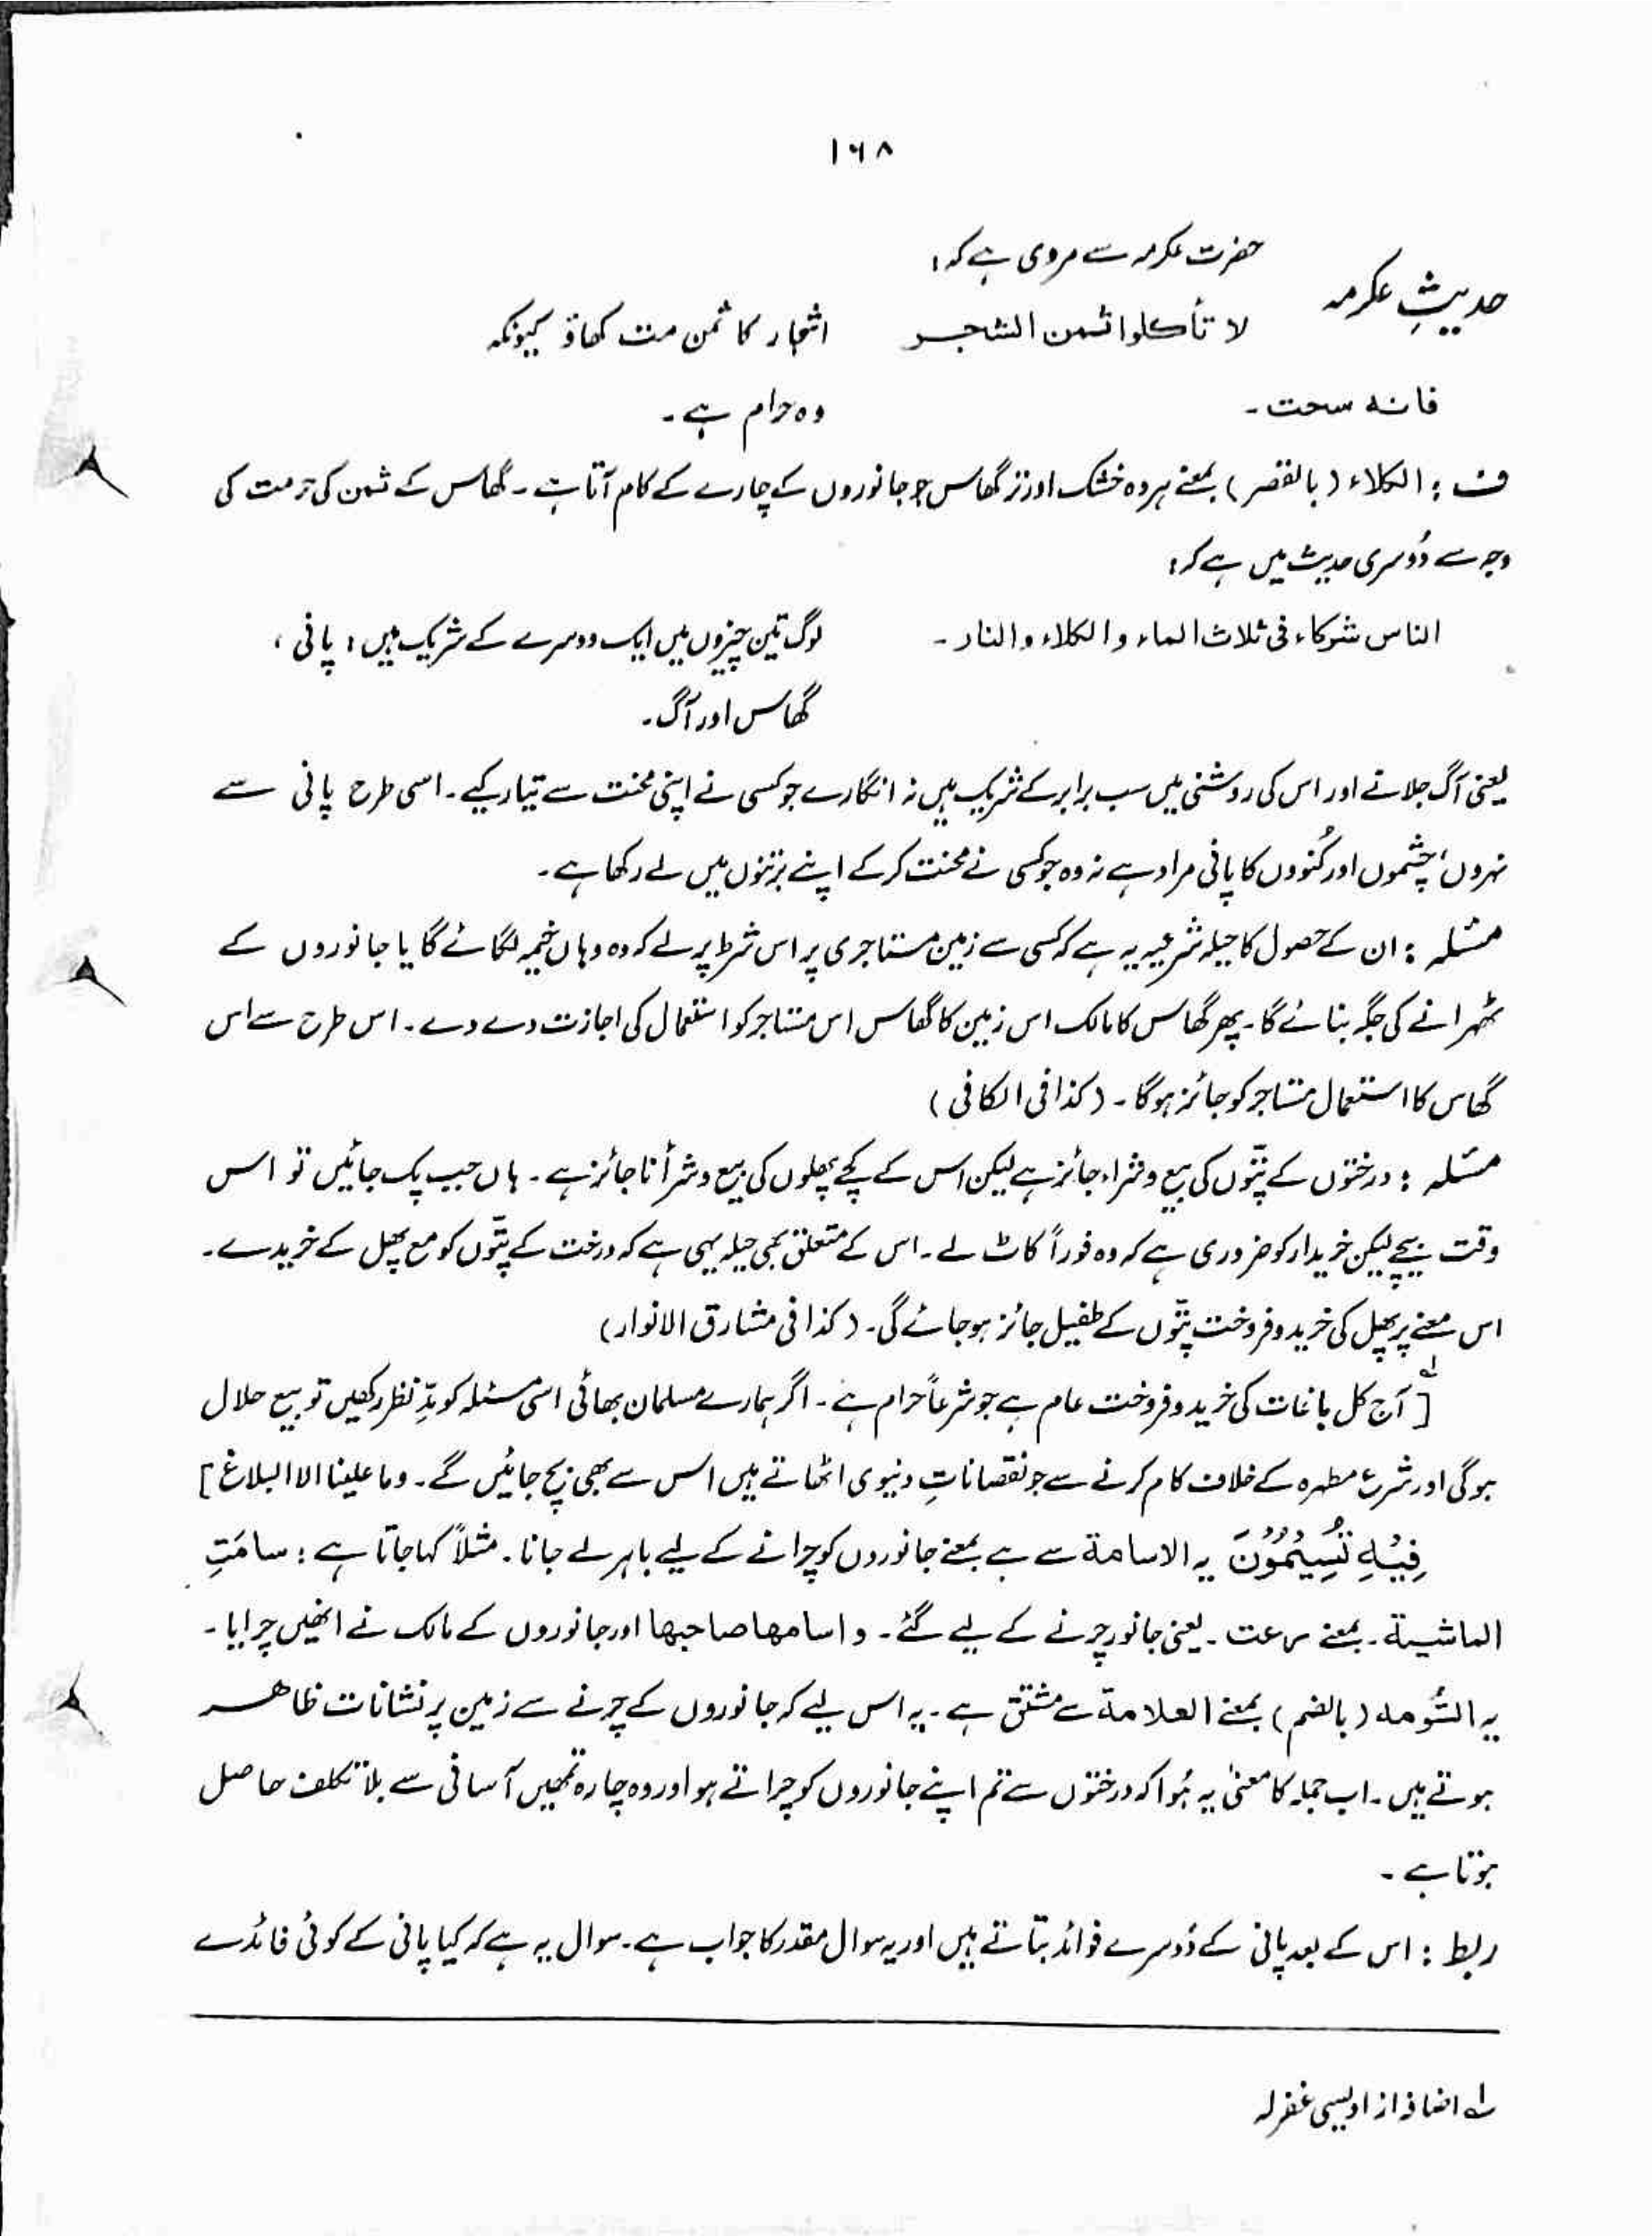 ۱۶۸
حضرت عکرمہ سے مروی ہے کہ:
حدیثِ عکرمہ
لا تأکلوا ثمن الشجر اشجار کا ثمن مت کھاؤ کیونکہ
فانہ سحت۔ وہ حرام ہے۔
ف : الکلاء (بالقصر) بمعنے ہر وہ خشک اور تر گھاس جو جانوروں کے چارے کے کام آتا ہے۔ گھاس کے ثمن کی حرمت کی
وجہ سے دُوسری حدیث میں ہے کہ:
الناس شرکاء فی ثلاث الماء والکلاء والنار۔ لوگ تین چیزوں میں ایک دوسرے کے شریک ہیں: پانی،
گھاس اور آگ۔
یعنی آگ جلانے اور اس کی روشنی میں سب برابر کے شریک ہیں نہ انگارے جو کسی نے اپنی محنت سے تیار کیے۔ اسی طرح پانی سے
نہروں، چشموں اور کُنووں کا پانی مراد ہے نہ وہ جو کسی نے محنت کر کے اپنے برتنوں میں لے رکھا ہے۔
مسئلہ : ان کے حصول کا حیلہ شرعیہ یہ ہے کہ کسی سے زمین مستاجری پر اس شرط پر لے کہ وہ وہاں خیمہ لگائے گا یا جانوروں کے
ٹھہرانے کی جگہ بنائے گا۔ پھر گھاس کا مالک اس زمین کا گھاس اس مستاجر کو استعمال کی اجازت دے دے۔ اس طرح سے اس
گھاس کا استعمال مستاجر کو جائز ہو گا۔ (کذا فی الکافی)
مسئلہ : درختوں کے پتّوں کی بیع و شراء جائز ہے لیکن اس کے کچے پھلوں کی بیع و شرأ ناجائز ہے۔ ہاں جب پک جائیں تو اس
وقت بیچے لیکن خریدار کو ضروری ہے کہ وہ فوراً کاٹ لے۔ اس کے متعلق بھی حیلہ یہی ہے کہ درخت کے پتّوں کو مع پھل کے خریدے۔
اس معنے پر پھل کی خرید و فروخت پتّوں کے طفیل جائز ہو جائے گی۔ (کذا فی مشارق الانوار)
[ لے آج کل باغات کی خرید و فروخت عام ہے جو شرعاً حرام ہے۔ اگر ہمارے مسلمان بھائی اسی مسئلہ کو مدِّ نظر رکھیں تو بیع حلال
ہو گی اور شرع مطہرہ کے خلاف کام کرنے سے جو نقصاناتِ دنیوی اٹھاتے ہیں اس سے بھی بچ جائیں گے۔ وما علینا الا البلاغ]
فِیْہِ تُسِیْمُوْنَ یہ الاسامۃ سے ہے بمعنے جانوروں کو چرانے کے لیے باہر لے جانا۔ مثلاً کہا جاتا ہے : سامَتِ
الماشیۃ۔ بمعنے رعت۔ یعنی جانور چرنے کے لیے گئے۔ واسامھا صاحبھا اور جانوروں کے مالک نے انھیں چرایا۔
یہ السُّومہ (بالضم) بمعنے العلامۃ سے مشتق ہے۔ یہ اس لیے کہ جانوروں کے چرنے سے زمین پر نشانات ظاہر
ہوتے ہیں۔ اب جملہ کا معنیٰ یہ ہُوا کہ درختوں سے تم اپنے جانوروں کو چراتے ہو اور وہ چارہ تمھیں آسانی سے بلا تکلف حاصل
ہوتا ہے۔
ربط : اس کے بعد پانی کے دُوسرے فوائد بتاتے ہیں اور یہ سوال مقدر کا جواب ہے۔ سوال یہ ہے کہ کیا پانی کے کوئی فائدے
لے اضافہ از اویسی غفرلہ